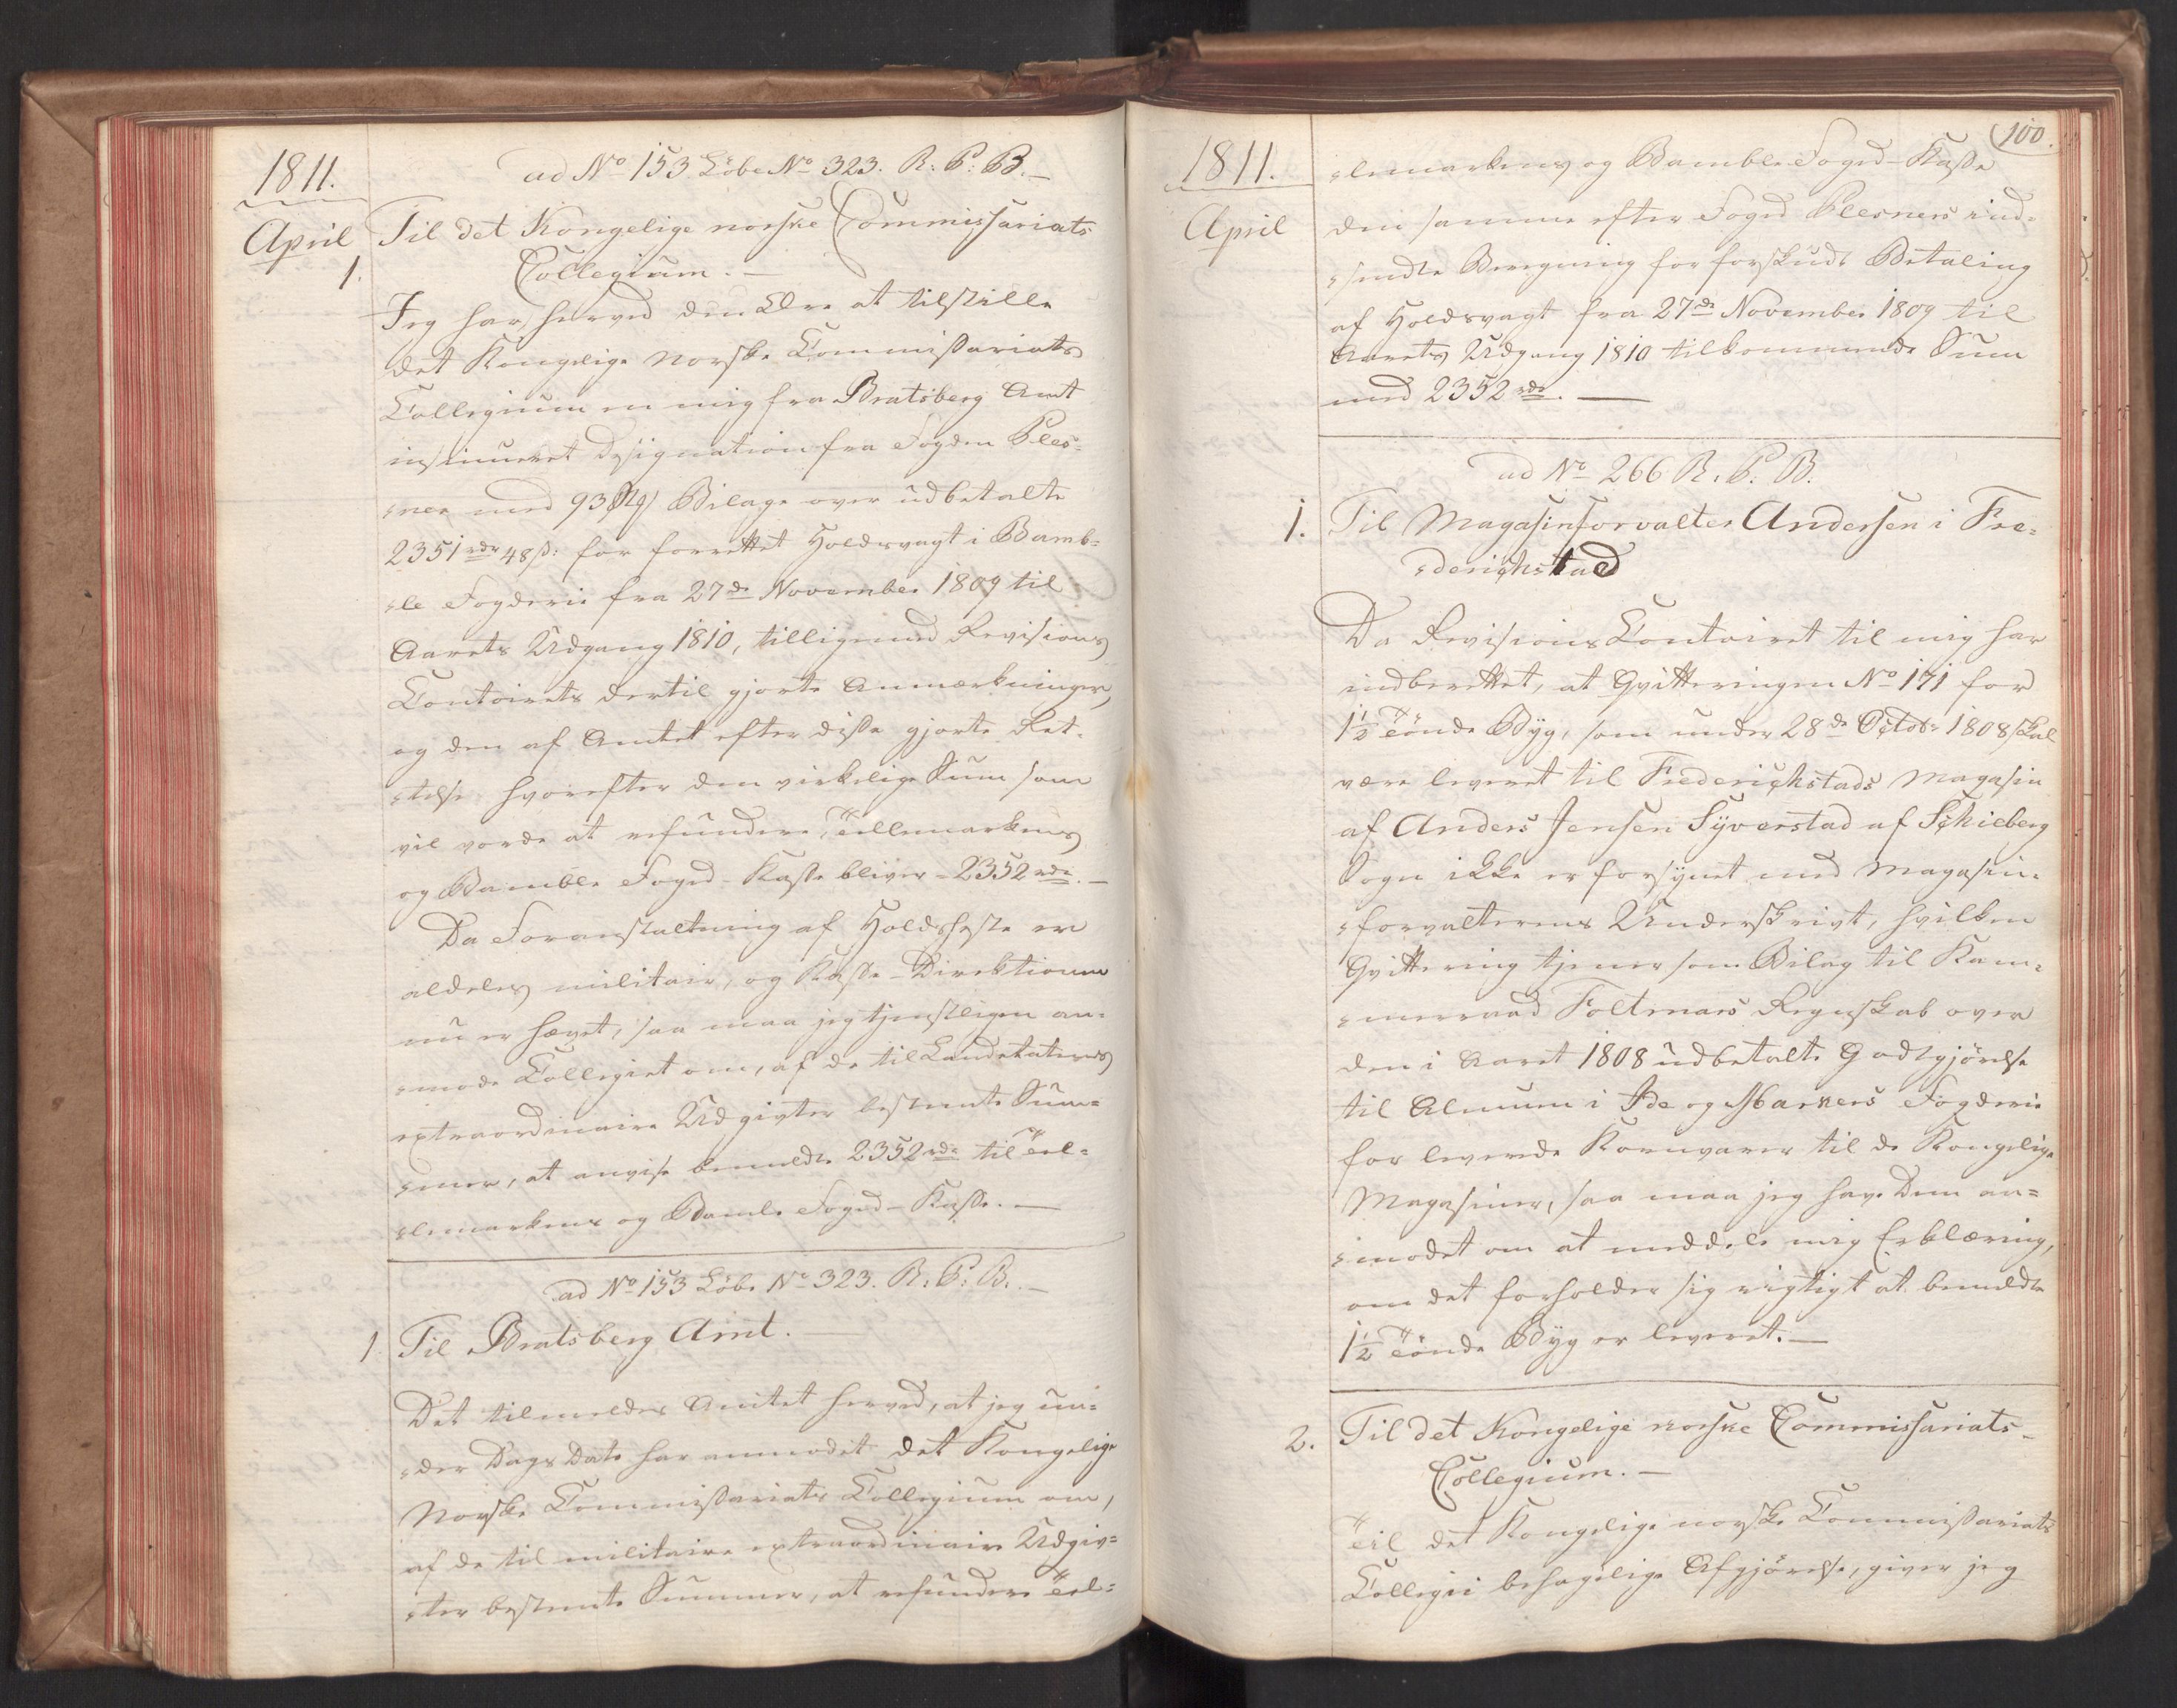 1811.
April
ad No 153 Löbe No 323. R: P: B. –
1.
Til det Kongelige norske Commissariats
Collegium. –
Jeg har herved den Ære at tilstille
det Kongelige Norske Commissariats
Collegium en mig fra Bratsberg Amt
insinueret Designation fra Fogden Ples-
=ner med 93 Bilage over udbetalte
2351 rdr 48 s: for forrettet Holdsvagt i Bamb-
=le Fogderie fra 27de November 1809 til
Aarets Udgang 1810, tilligemed Revisions
Contoirets dertil gjorte Anmærkninger,
og den af Amtet efter disse gjorte Ret-
=telse hvorefter den virkelige Sum som
vil vorde at refundere Tellemarkens
og Bamble Foged-Kasse bliver - 2352 rdr. –
Da Foranstaltning af Holdsheste er
aldeles militair, og Kasse-Direktionen
nu er hævet, saa maa jeg tjenstligen an-
=mode Collegiet om, af de til Landetatens
extraordinaire Udgivter bestemte Sum-
=mer, at anvise bemeldte 2352 rdr til Tel-
=lemarkens og Bamle Foged-Kasse. –
ad No 153 Löbe No 323. R: P: B. –
1. Til Bratsberg Amt.
Det tilmeldes Amtet herved, at jeg un-
=der Dags Dato har anmodet det Kongelige
Norske Commissariats Collegium om,
af de til militaire extraordinaire Udgiv-
=ter bestemte Summer, at refundere Tel-
100.
1811.
April
=lemarkens og Bamble Foged-Kasse
den samme efter Foged Plesners ind-
=sendte Beregning for forskuds Betaling
af Holdsvagt fra 27de November 1809 til
Aarets Udgang 1810 tilkommende Sum
med 2352 rdr. –
ad No 266 R. P. B.
1. Til Magasinforvalter Andersen i Fre-
=derichstad
Da Revisions Contoiret til mig har
indberettet, at Qvitteringen No 171 for
1½ Tönde Byg, som under 28de Octobr 1808 skal
være leveret til Frederichstads Magasin
af Anders Jensen Syverstad af Schieberg
Sogn ikke er forsynet med Magasin-
=forvalterens Underskrivt, hvilken
Qvittering tjener som Bilag til Kam-
=merraad Foltmars Regnskab over
den i Aaret 1808 udbetalte Godtgjörelse
til Almuen i Ide og Markers Fogderie
for leverede Kornvarer til de Kongelige
Magasiner, saa maa jeg have Dem an-
=modet om at meddele mig Erklæring,
om det forholder sig rigtigt at bemeldte
1½ Tönde Byg er leveret. –
2. Til det Kongelige norske Commissariats-
Collegium. –
Til det Kongelige norske Commissariats
Collegii behagelige Afgjörelse, giver jeg